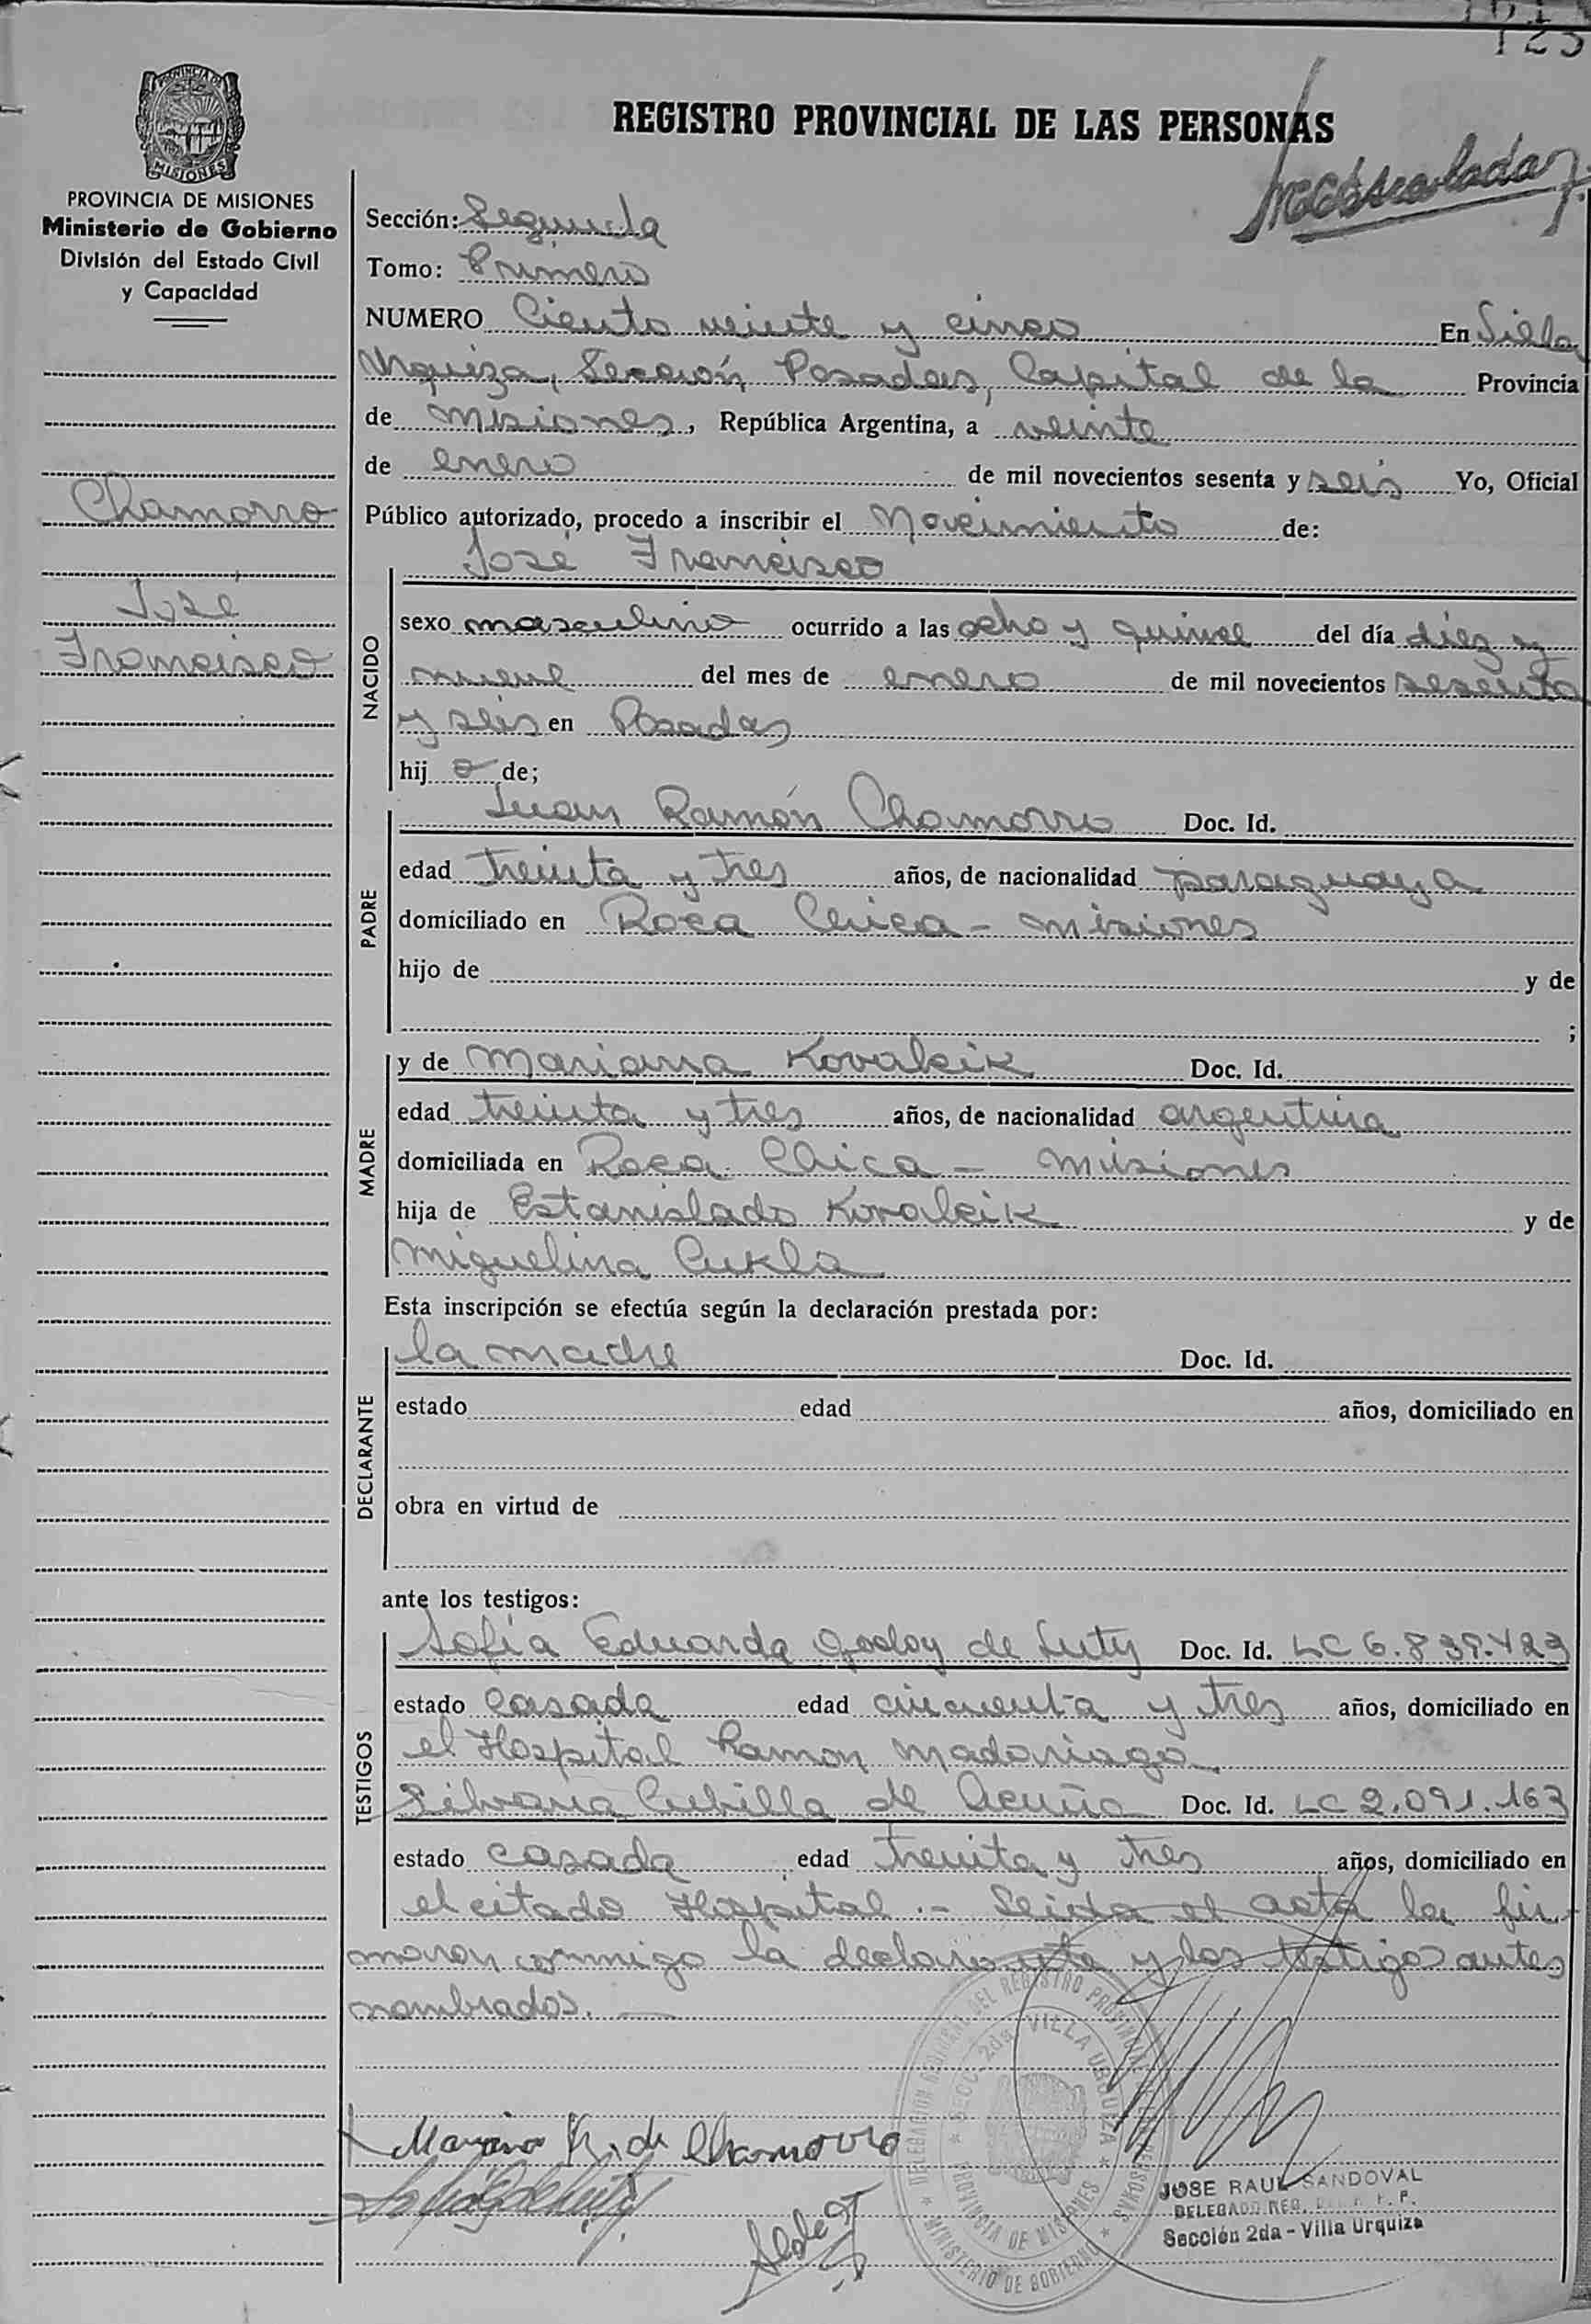 125
REGISTRO PROVINCIAL DE LAS PERSONAS
PROVINCIA DE MISIONES
PROVINCIA DE MISIONES
Ministerio de Gobierno
División del Estado Civil
y Capacidad
Chamorro
José
Francisco
Sección: Segunda
Tomo: Primero
NUMERO Ciento veinte y cinco En Villa
Urquiza, Sección Posadas, Capital de la Provincia
de Misiones, República Argentina, a veinte
de enero de mil novecientos sesenta y seis Yo, Oficial
Público autorizado, procedo a inscribir el Nacimiento de:
José Francisco
NACIDO
sexo masculino ocurrido a las ocho y quince del día diez y
nueve del mes de enero de mil novecientos sesenta
y seis en Posadas
hij o de;
PADRE
Juan Ramón Chamorro Doc. Id.
edad treinta y tres años, de nacionalidad paraguaya
domiciliado en Roca Chica - Misiones
hijo de y de
;
MADRE
y de Mariana Kovalcik Doc. Id.
edad treinta y tres años, de nacionalidad argentina
domiciliada en Roca Chica - Misiones
hija de Estanislado Kovalcik y de
Miguelina Cukla
Esta inscripción se efectúa según la declaración prestada por:
DECLARANTE
la madre Doc. Id.
estado edad años, domiciliado en
obra en virtud de
ante los testigos:
TESTIGOS
Sofía Eduarda Godoy de Luty Doc. Id. LC 6.839.423
estado casada edad cincuenta y tres años, domiciliado en
el Hospital Ramon Madariaga
Silvana Cubilla de Acuña Doc. Id. LC 2.091.163
estado casada edad treinta y tres años, domiciliado en
el citado Hospital .- Leida el acta la fir-
maron conmigo la declarante y los testigos antes
nombrados.
Mariana K. de Chamorro
DELEGACION REGIONAL DEL REGISTRO PROVINCIAL DE LAS PERSONAS
SECC. 2da VILLA URQUIZA
PROVINCIA DE MISIONES
MINISTERIO DE GOBIERNO
JOSE RAUL SANDOVAL
DELEGADO REG. P. P.
Sección 2da - Villa Urquiza